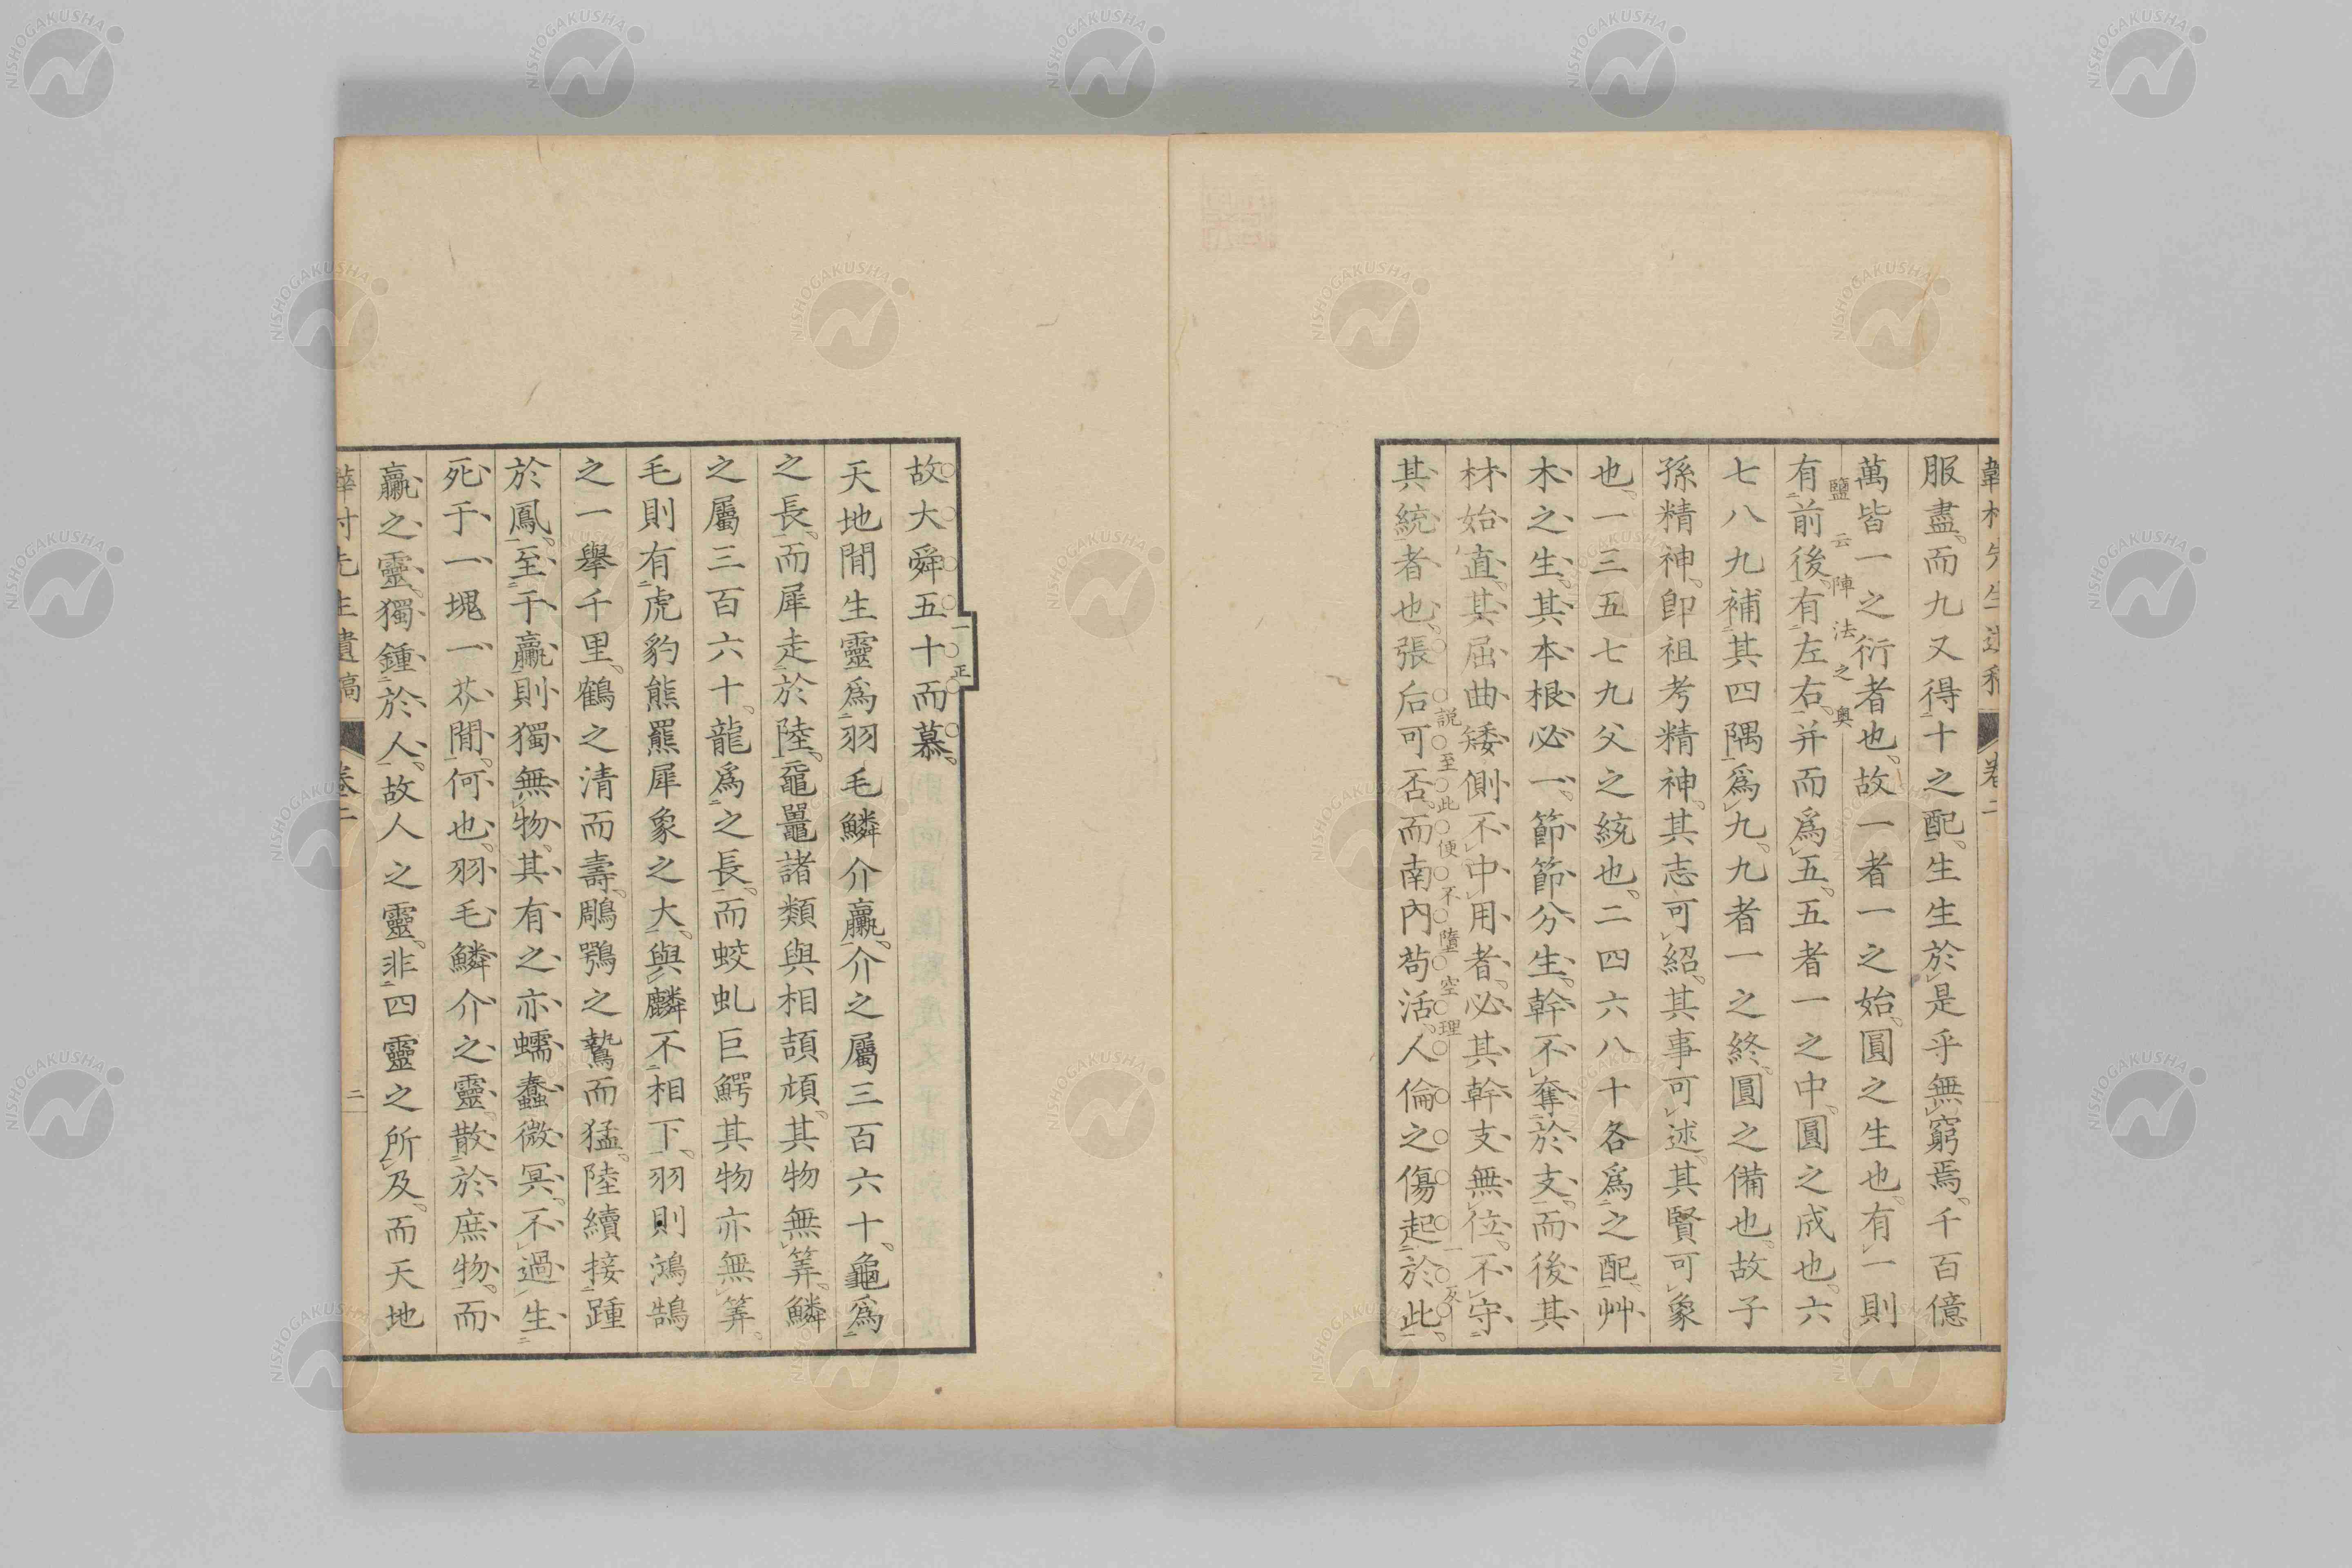 服盡而九又得十之配生生於是乎無窮焉千百億
萬皆一之衍者也故一者一之始圓之生也有一則
鹽云陣法之奧
有前後有左右并而爲五五者一之中圓之成也六
七八九補其四隅爲九九者一之終圓之備也故子
孫精神卽祖考精神其志可紹其事可述其賢可象
也一三五七九父之統也二四六八十各爲之配艸
木之生其本根必一節節分生幹不奪於支而後其
材始直其屈曲矮側不中用者必其幹支無位不守
其統者也張后可否而南內苟活人倫之傷起於此
說至此便不墮空理
一反
故大舜五十而慕
一正
天地間生靈爲羽毛鱗介蠃介之屬三百六十龜爲
之長而犀走於陸黿鼉諸類與相頡頏其物無筭鱗
之屬三百六十龍爲之長而蛟虬巨鰐其物亦無筭
毛則有虎豹熊羆犀象之大與麟不相下羽則鴻鵠
之一擧千里鶴之清而壽鵰鶚之鷙而猛陸續接踵
於鳳至于蠃則獨無物其有之亦蠕蠢微冥不過生
死于一塊一芥間何也羽毛鱗介之靈散於庶物而
蠃之靈獨鍾於人故人之靈非四靈之所及而天地
先生遺稿 卷二 二